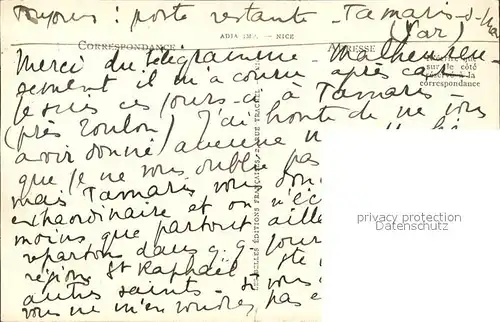 toujours : poste restante - Tamaris-s-Mer
(Var)
ADIA IMP. - NICE
CORRESPONDANCE
ADRESSE
N'écrire que
sur le côté
réservé à la
correspondance
Merci du télégramme - Malheureu-
sement il m'a couru après car
je suis ces jours-ci à Tamaris -
(près Toulon) J'ai honte de ne vous
avoir donné aucune
que je ne vous oublie pas
mais Tamaris vous
extraordinaire et on n'éc
moins que partout aille
repartons dans q.q. jour
région St Raphaël Ste
autres saints - si vous
vous ne m'en voudrez pas
LES BELLES ÉDITIONS FRANÇAISES, RUE TRACHEL
privacy protection
Oldthing